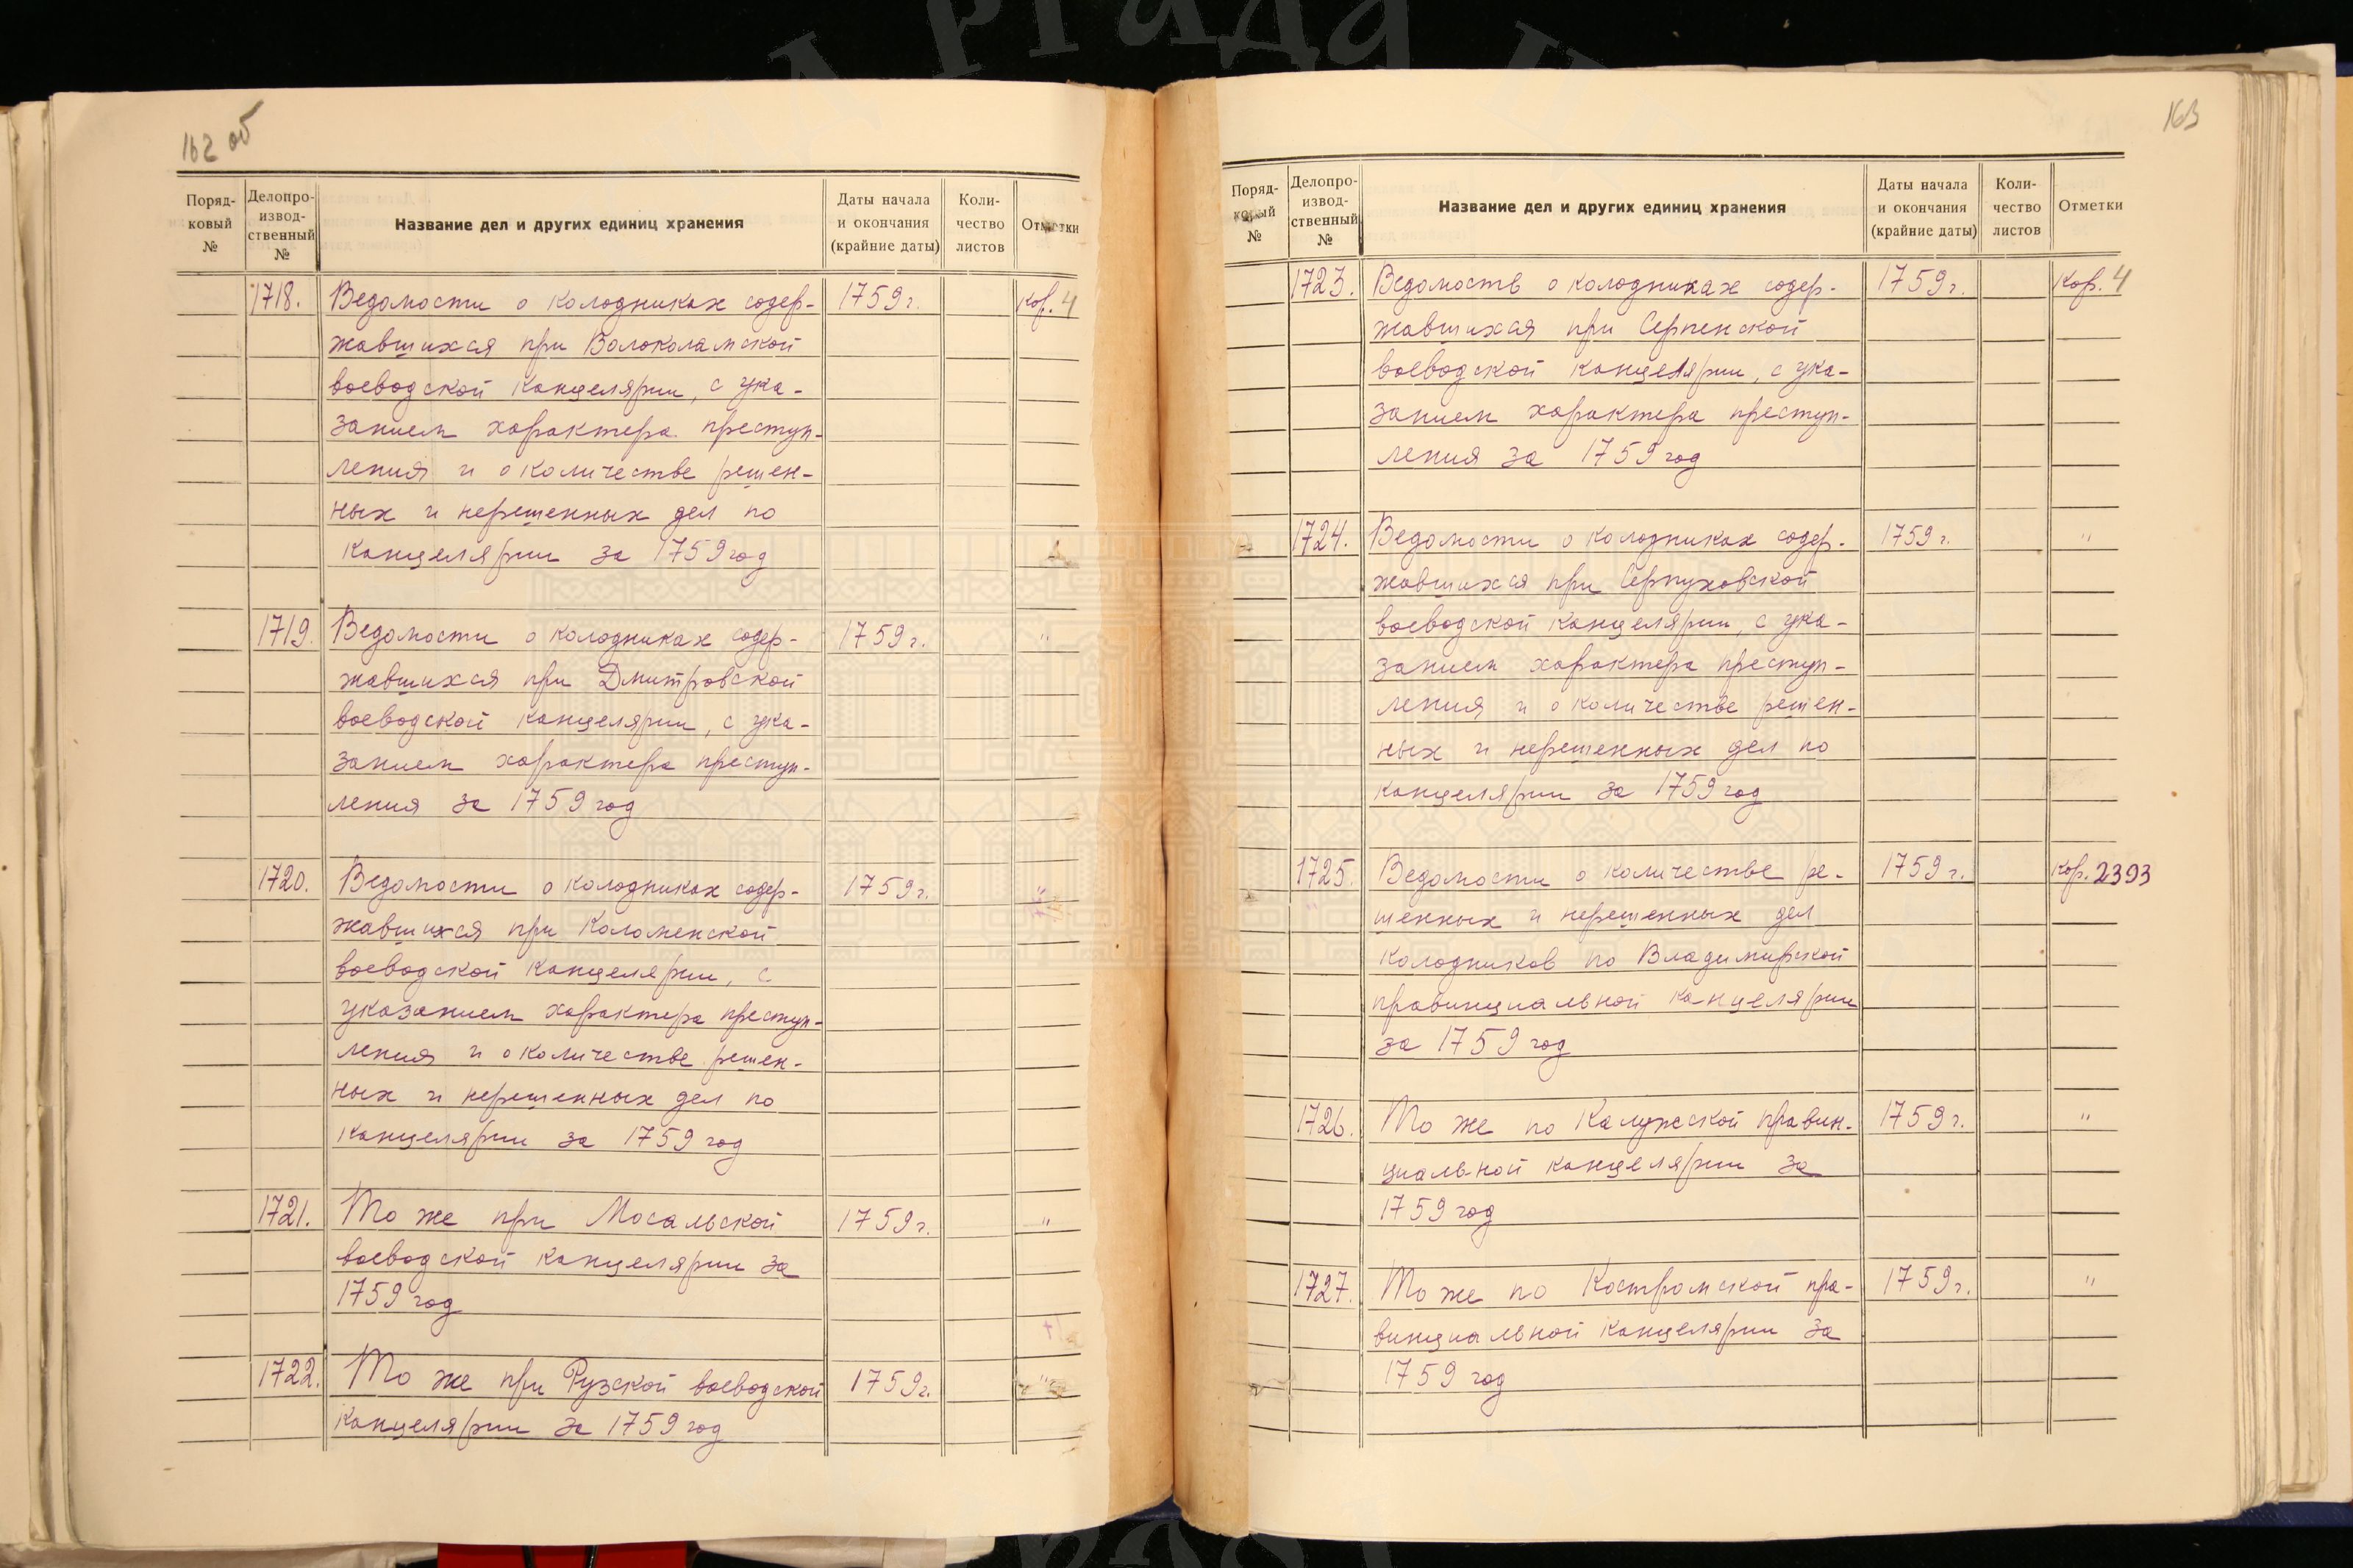 162 об
Поряд-
ковый
№
Делопро-
извод-
ственный
№
Название дел и других единиц хранения
Даты начала
и окончания
(крайние даты)
Коли-
чество
листов
Отметки
1718. Ведомости о колодниках содер- 1759 г. Кор. 4
жавшихся при Волоколамской
воеводской канцелярии, с ука-
занием характера преступ-
ления и о количестве решен-
ных и нерешенных дел по
канцелярии за 1759 год
1719. Ведомости о колодниках содер- 1759 г. "
жавшихся при Дмитровской
воеводской канцелярии, с ука-
занием характера преступ-
ления за 1759 год
1720. Ведомости о колодниках содер- 1759 г. "
жавшихся при Коломенской
воеводской канцелярии, с
указанием характера преступ-
ления и о количестве решен-
ных и нерешенных дел по
канцелярии за 1759 год
1721. То же при Мосальской 1759 г. "
воеводской канцелярии за
1759 год
1722. То же при Рузской воеводской 1759 г. "
канцелярии за 1759 год
163
Поряд-
ковый
№
Делопро-
извод-
ственный
№
Название дел и других единиц хранения
Даты начала
и окончания
(крайние даты)
Коли-
чество
листов
Отметки
1723. Ведомость о колодниках содер- 1759 г. Кор. 4
жавшихся при Серпенской
воеводской канцелярии, с ука-
занием характера преступ-
ления за 1759 год
1724. Ведомости о колодниках содер- 1759 г. "
жавшихся при Серпуховской
воеводской канцелярии, с ука-
занием характера преступ-
ления и о количестве решен-
ных и нерешенных дел по
канцелярии за 1759 год
1725. Ведомости о количестве ре- 1759 г. Кор. 2393
шенных и нерешенных дел
колодников по Владимирской
правинциальной канцелярии
за 1759 год
1726. То же по Калужской правин- 1759 г. "
циальной канцелярии за
1759 год
1727. То же по Костромской пра- 1759 г. "
винциальной канцелярии за
1759 год